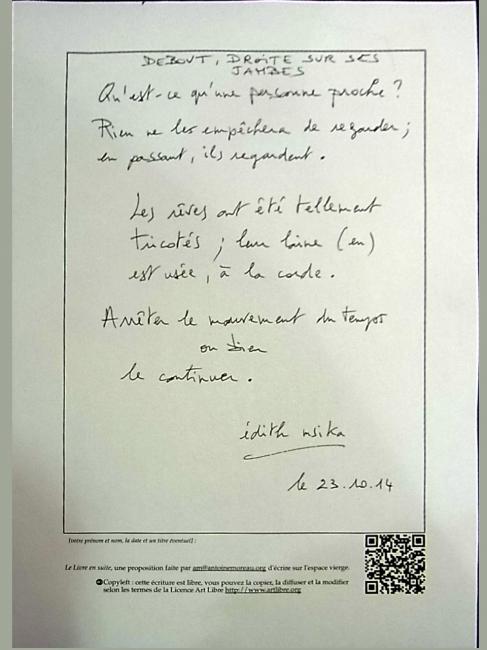 DEBOUT, DROITE SUR SES
JAMBES
Qu'est-ce qu'une personne proche ?
Rien ne les empêchera de regarder ;
en passant, ils regardent.
Les rêves ont été tellement
tricotés ; leur laine (en)
est usée, à la corde.
Arrêter le mouvement du temps
ou bien
le continuer.
édith msika
le 23.10.14
[votre prénom et nom, la date et un titre éventuel] :
Le Livre en suite, une proposition faite par am@antoinemoreau.org d'écrire sur l'espace vierge.
Copyleft : cette écriture est libre, vous pouvez la copier, la diffuser et la modifier
selon les termes de la Licence Art Libre http://www.artlibre.org